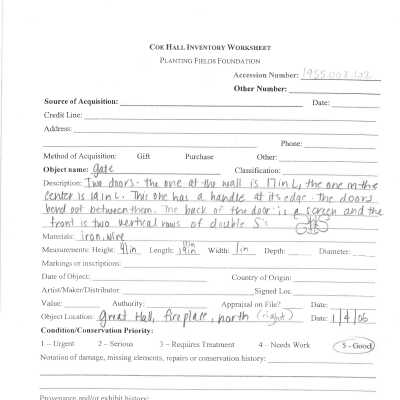 COE HALL INVENTORY WORKSHEET
PLANTING FIELDS FOUNDATION
Accession Number: 1955.003.102
Other Number:
Source of Acquisition: Date:
Credit Line:
Address:
Phone:
Method of Acquisition: Gift Purchase Other:
Object name: gate Classification:
Description: Two doors - the one at the wall is 17 in L, the one in the
center is 19 in L. This one has a handle at its edge. The doors
bend out between them. The back of the door is a screen and the
front is two vertical rows of double S's
Materials: iron, wire
Measurements: Height: 41in Length: 19in Width: 1in Depth: Diameter:
Markings or inscriptions:
Date of Object: Country of Origin:
Artist/Maker/Distributor Signed Loc.
Value: Authority: Appraisal on File? Date:
Object Location: Great Hall, fireplace, north (right) Date: 1/4/06
Condition/Conservation Priority:
1 – Urgent 2 – Serious 3 – Requires Treatment 4 – Needs Work 5 - Good
Notation of damage, missing elements, repairs or conservation history:
Provenance and/or exhibit history: